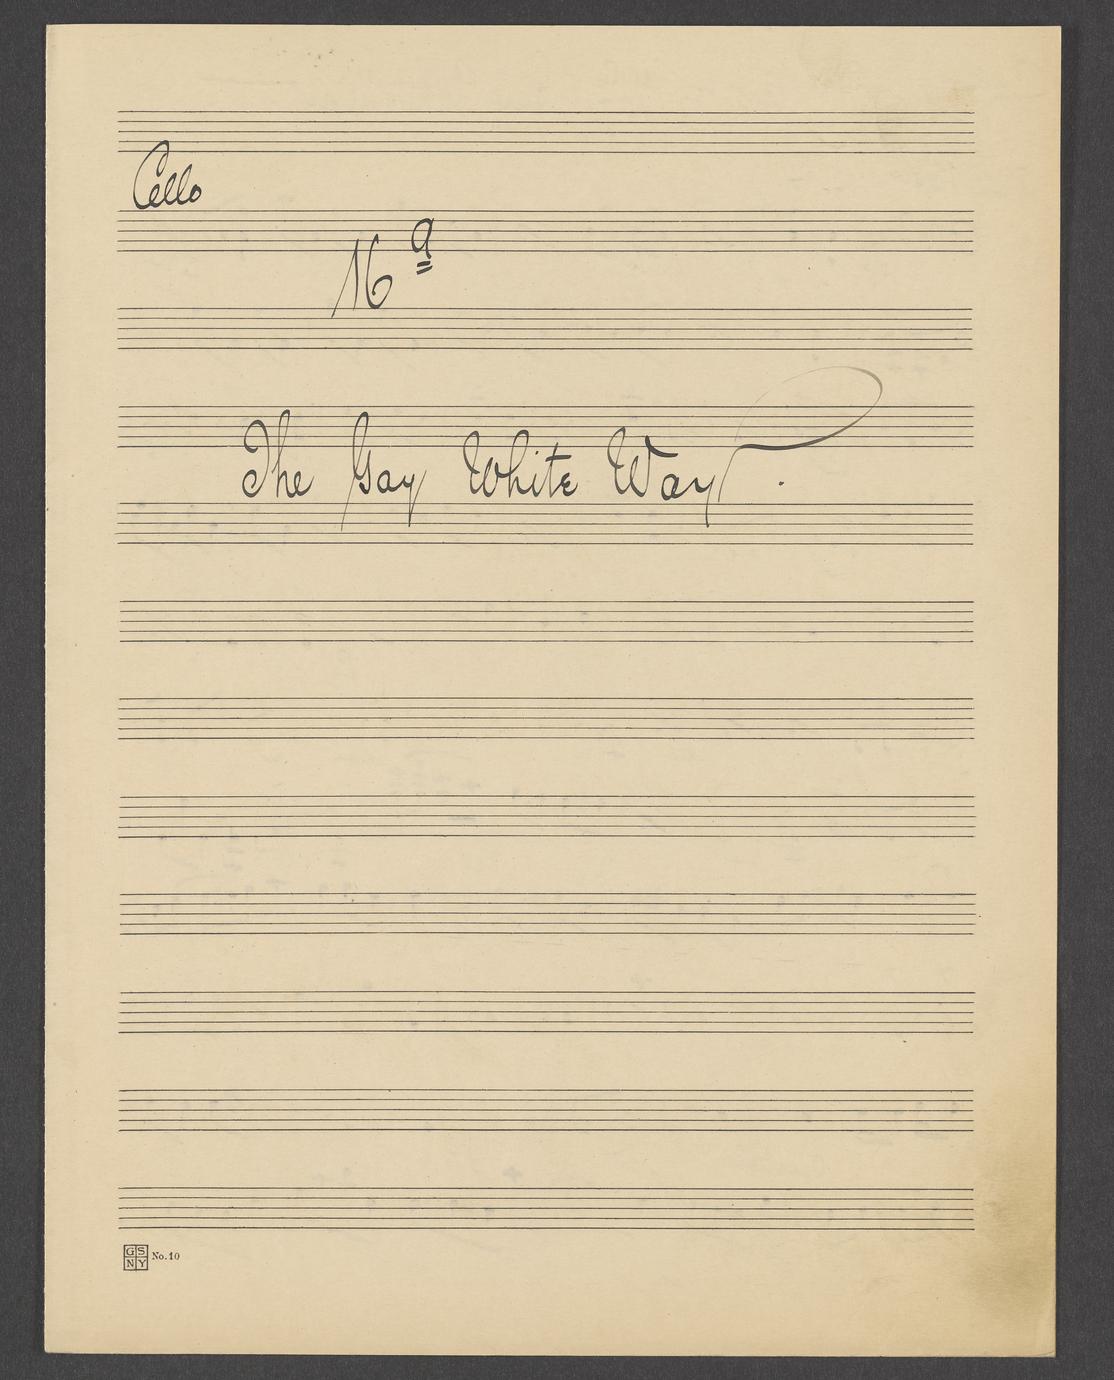 Cello
16 a
The Gay White Way.
GS
NY No. 10